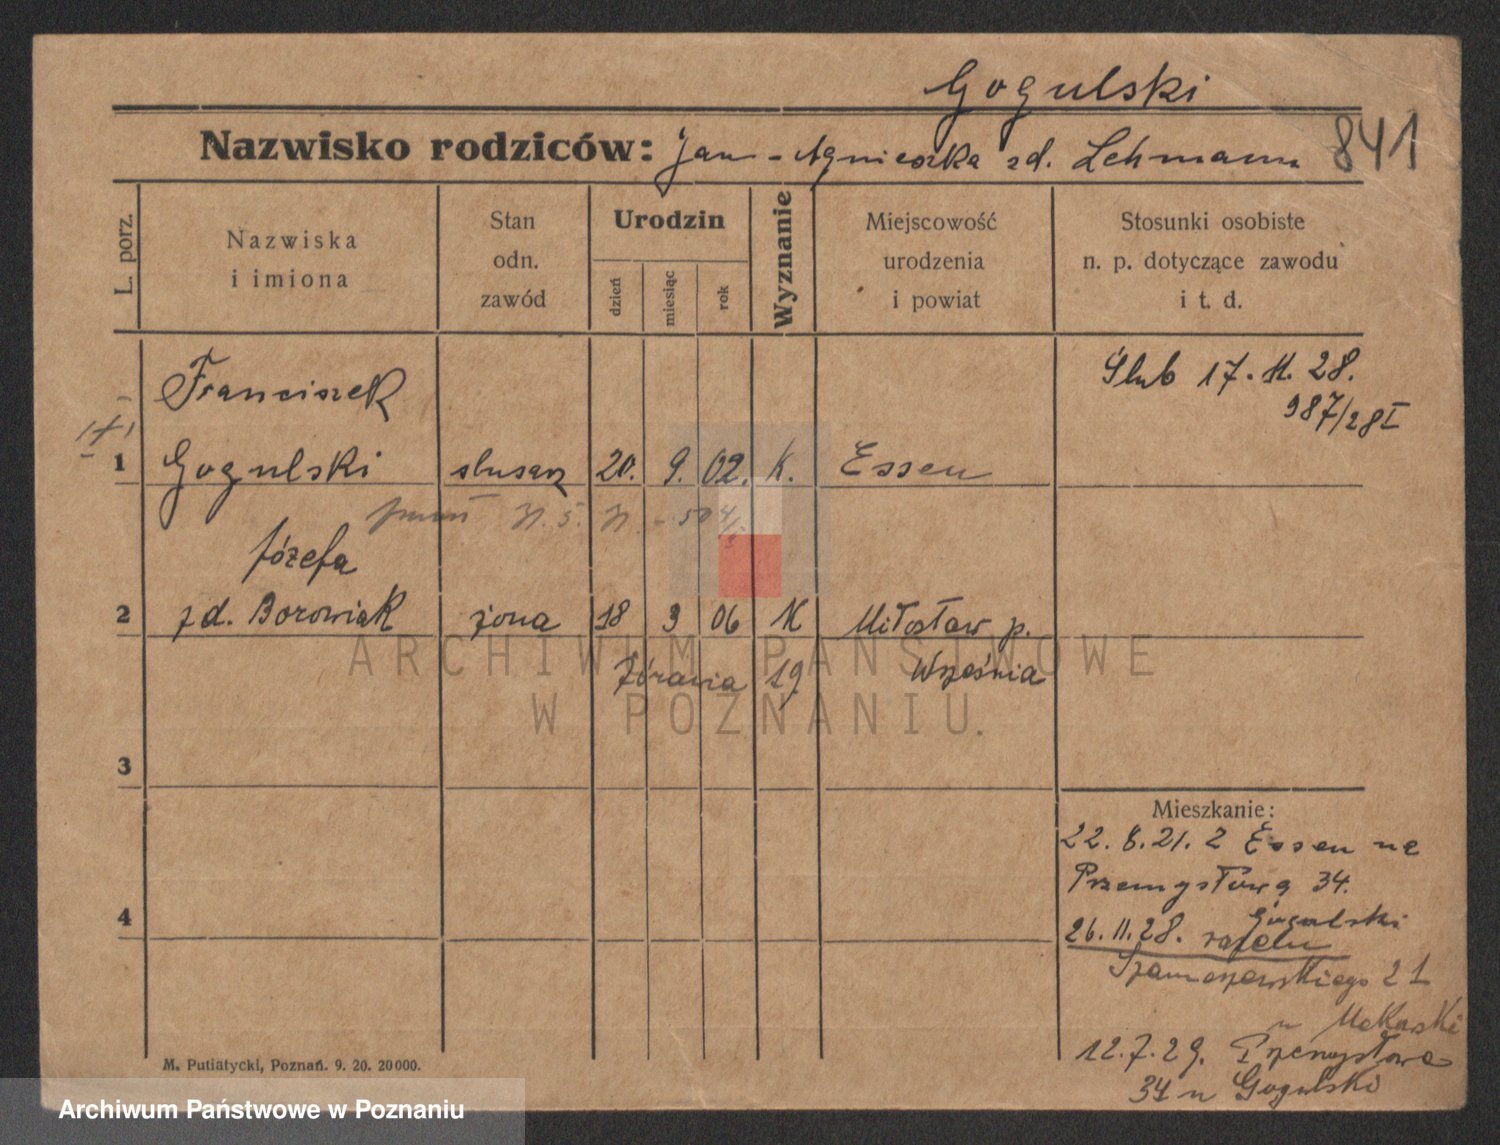 Gogulski
Nazwisko rodziców: Jan - Agnieszka zd. Lehmann 841
L. porz.
Nazwiska i imiona
Stan odn. zawód
Urodzin
dzień
miesiąc
rok
Wyznanie
Miejscowość urodzenia i powiat
Stosunki osobiste n. p. dotyczące zawodu i t. d.
Franciszek
Ślub 17. 11. 28.
987/28 I
1 Gogulski slusarz 20. 9. 02. K. Essen
Józefa
2 zd. Borowiak żona 18 3 06 K Miłosław p.
Żórawia 19 Września
3
Mieszkanie:
22. 8. 21. z Essen na
Przemysłową 34.
4
Gogulski
26. 11. 28. razem
Szamarzewskiego 21
u
12. 7. 29. Przemysłowa
34 u Gogulski
M. Putiatycki, Poznań. 9. 20. 20000.
ARCHIWUM PAŃSTWOWE
W POZNANIU.
Archiwum Państwowe w Poznaniu